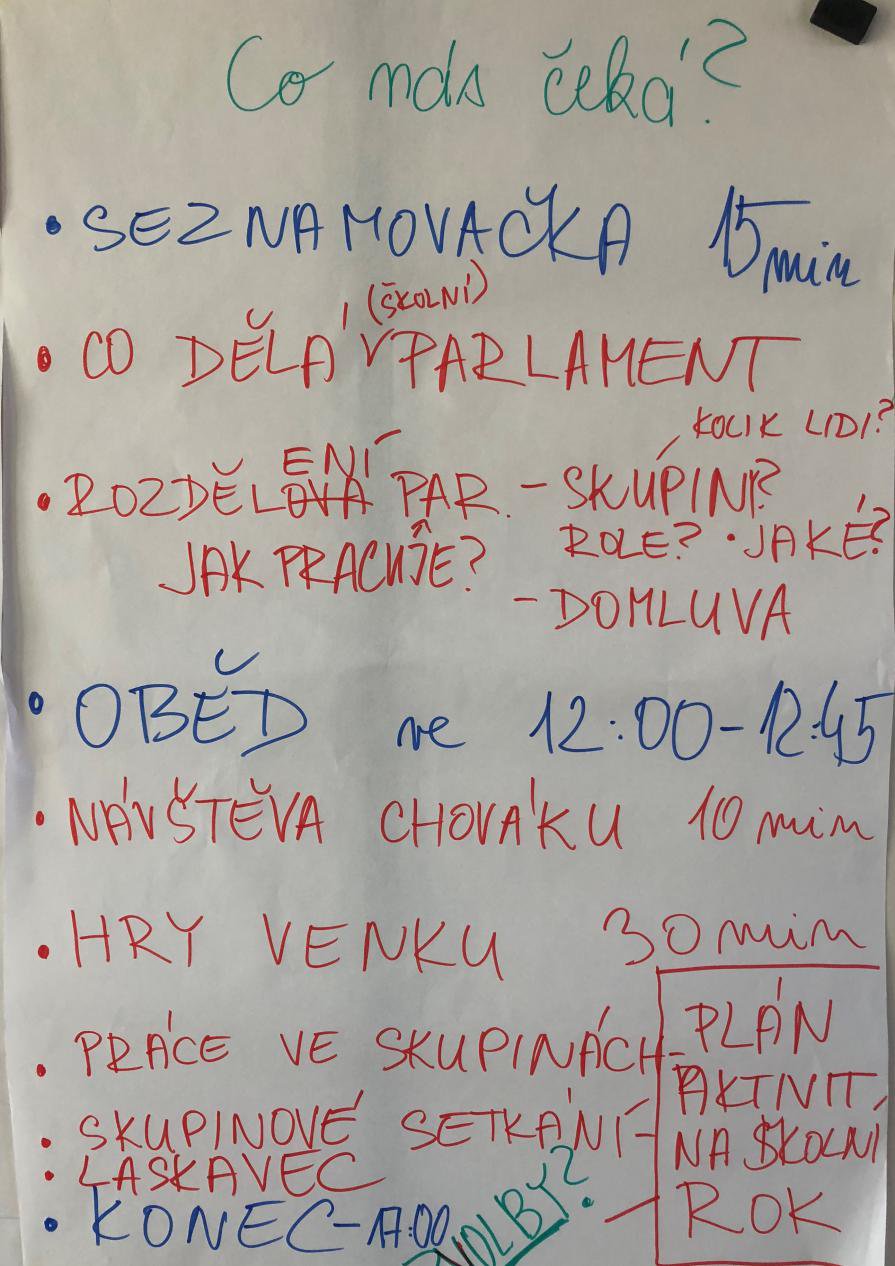 Co nás čeká?
• SEZNAMOVAČKA 15 min
(ŠKOLNÍ)
• CO DĚLÁ PARLAMENT
KOLIK LIDI?
ENÍ
• ROZDĚLOVÁ PAR. - SKUPINY?
ROLE? • JAKÉ?
JAK PRACUJE?
- DOMLUVA
• OBĚD ve 12:00-12:45
• NÁVŠTĚVA CHOVÁKU 10 min
• HRY VENKU 30 min
• PRÁCE VE SKUPINÁCH -
• SKUPINOVÉ SETKÁNÍ -
• LASKAVEC
• KONEC - 17:00
VOLBY?
PLÁN
AKTIVIT
NA ŠKOLNÍ
ROK